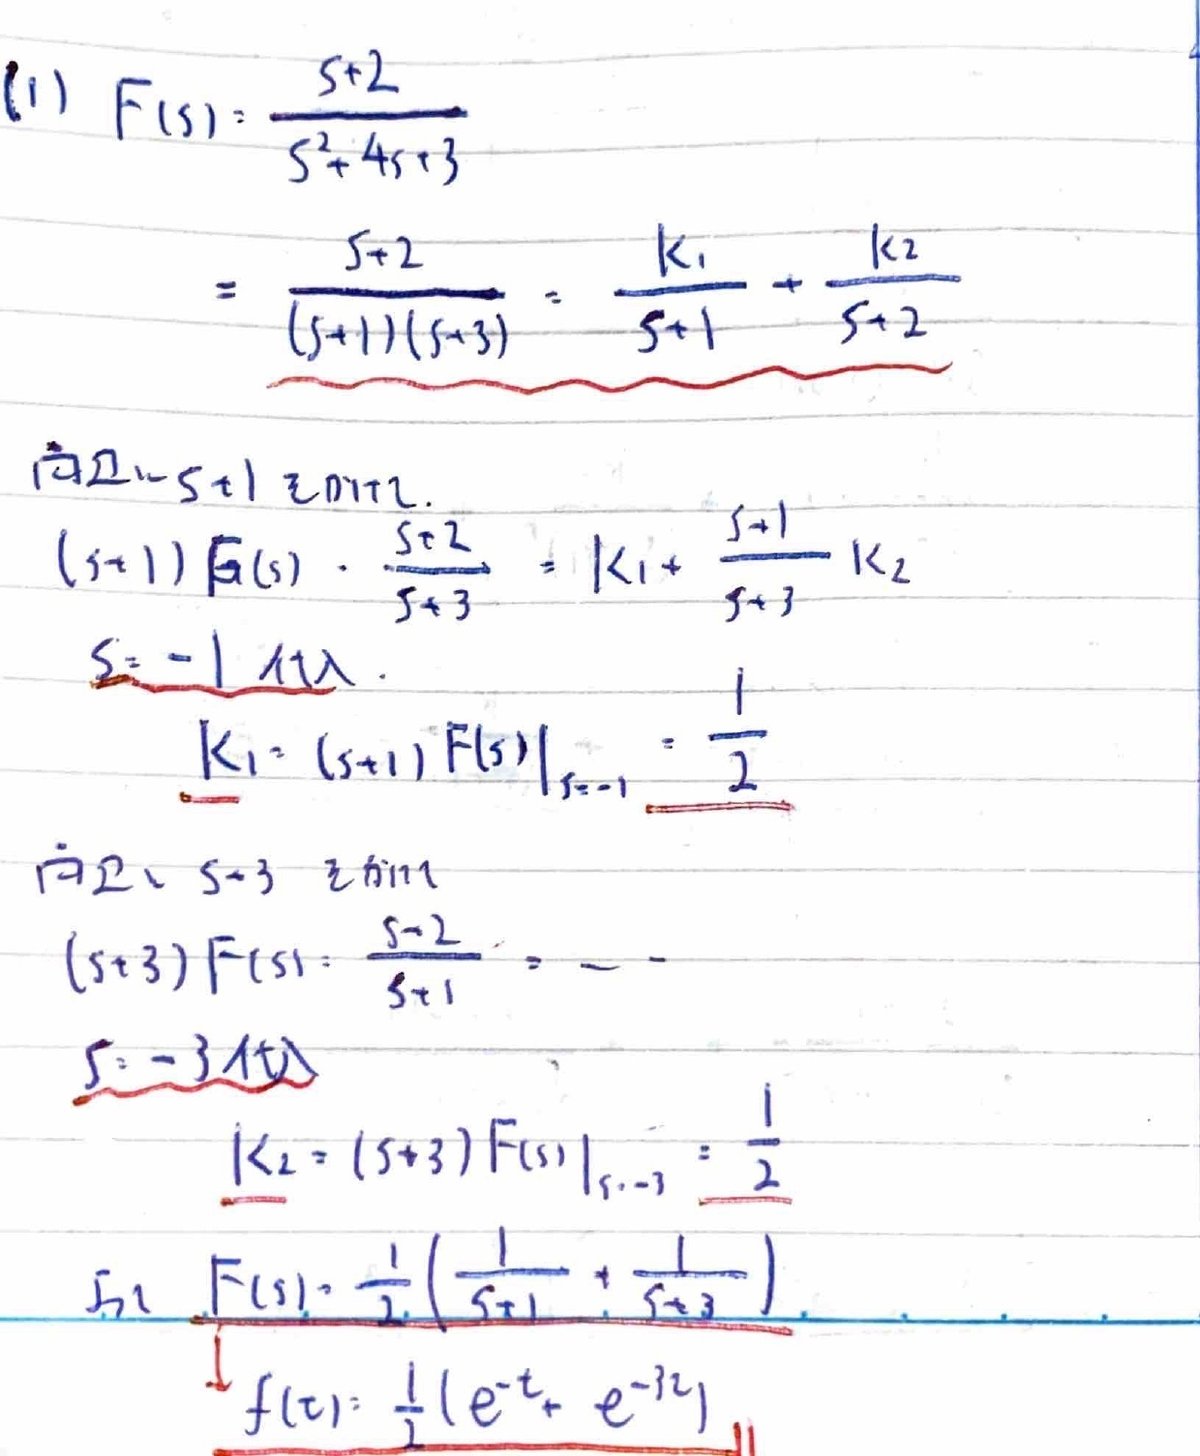 (1) F(s) = \frac{s+2}{s^2+4s+3}
= \frac{s+2}{(s+1)(s+3)} = \frac{k_1}{s+1} + \frac{k_2}{s+2}
両辺に s+1 をかけて.
(s+1) F(s) · \frac{s+2}{s+3} = k_1 + \frac{s+1}{s+3} k_2
s=-1 代入.
k_1 = (s+1) F(s)|_{s=-1} = \frac{1}{2}
両辺に s+3 をかけて
(s+3) F(s) = \frac{s+2}{s+1} = - -
s=-3 代入
k_2 = (s+3) F(s)|_{s=-3} = \frac{1}{2}
よって F(s) = \frac{1}{2} ( \frac{1}{s+1} + \frac{1}{s+3} )
↓ f(t) = \frac{1}{2} ( e^{-t} + e^{-3t} )